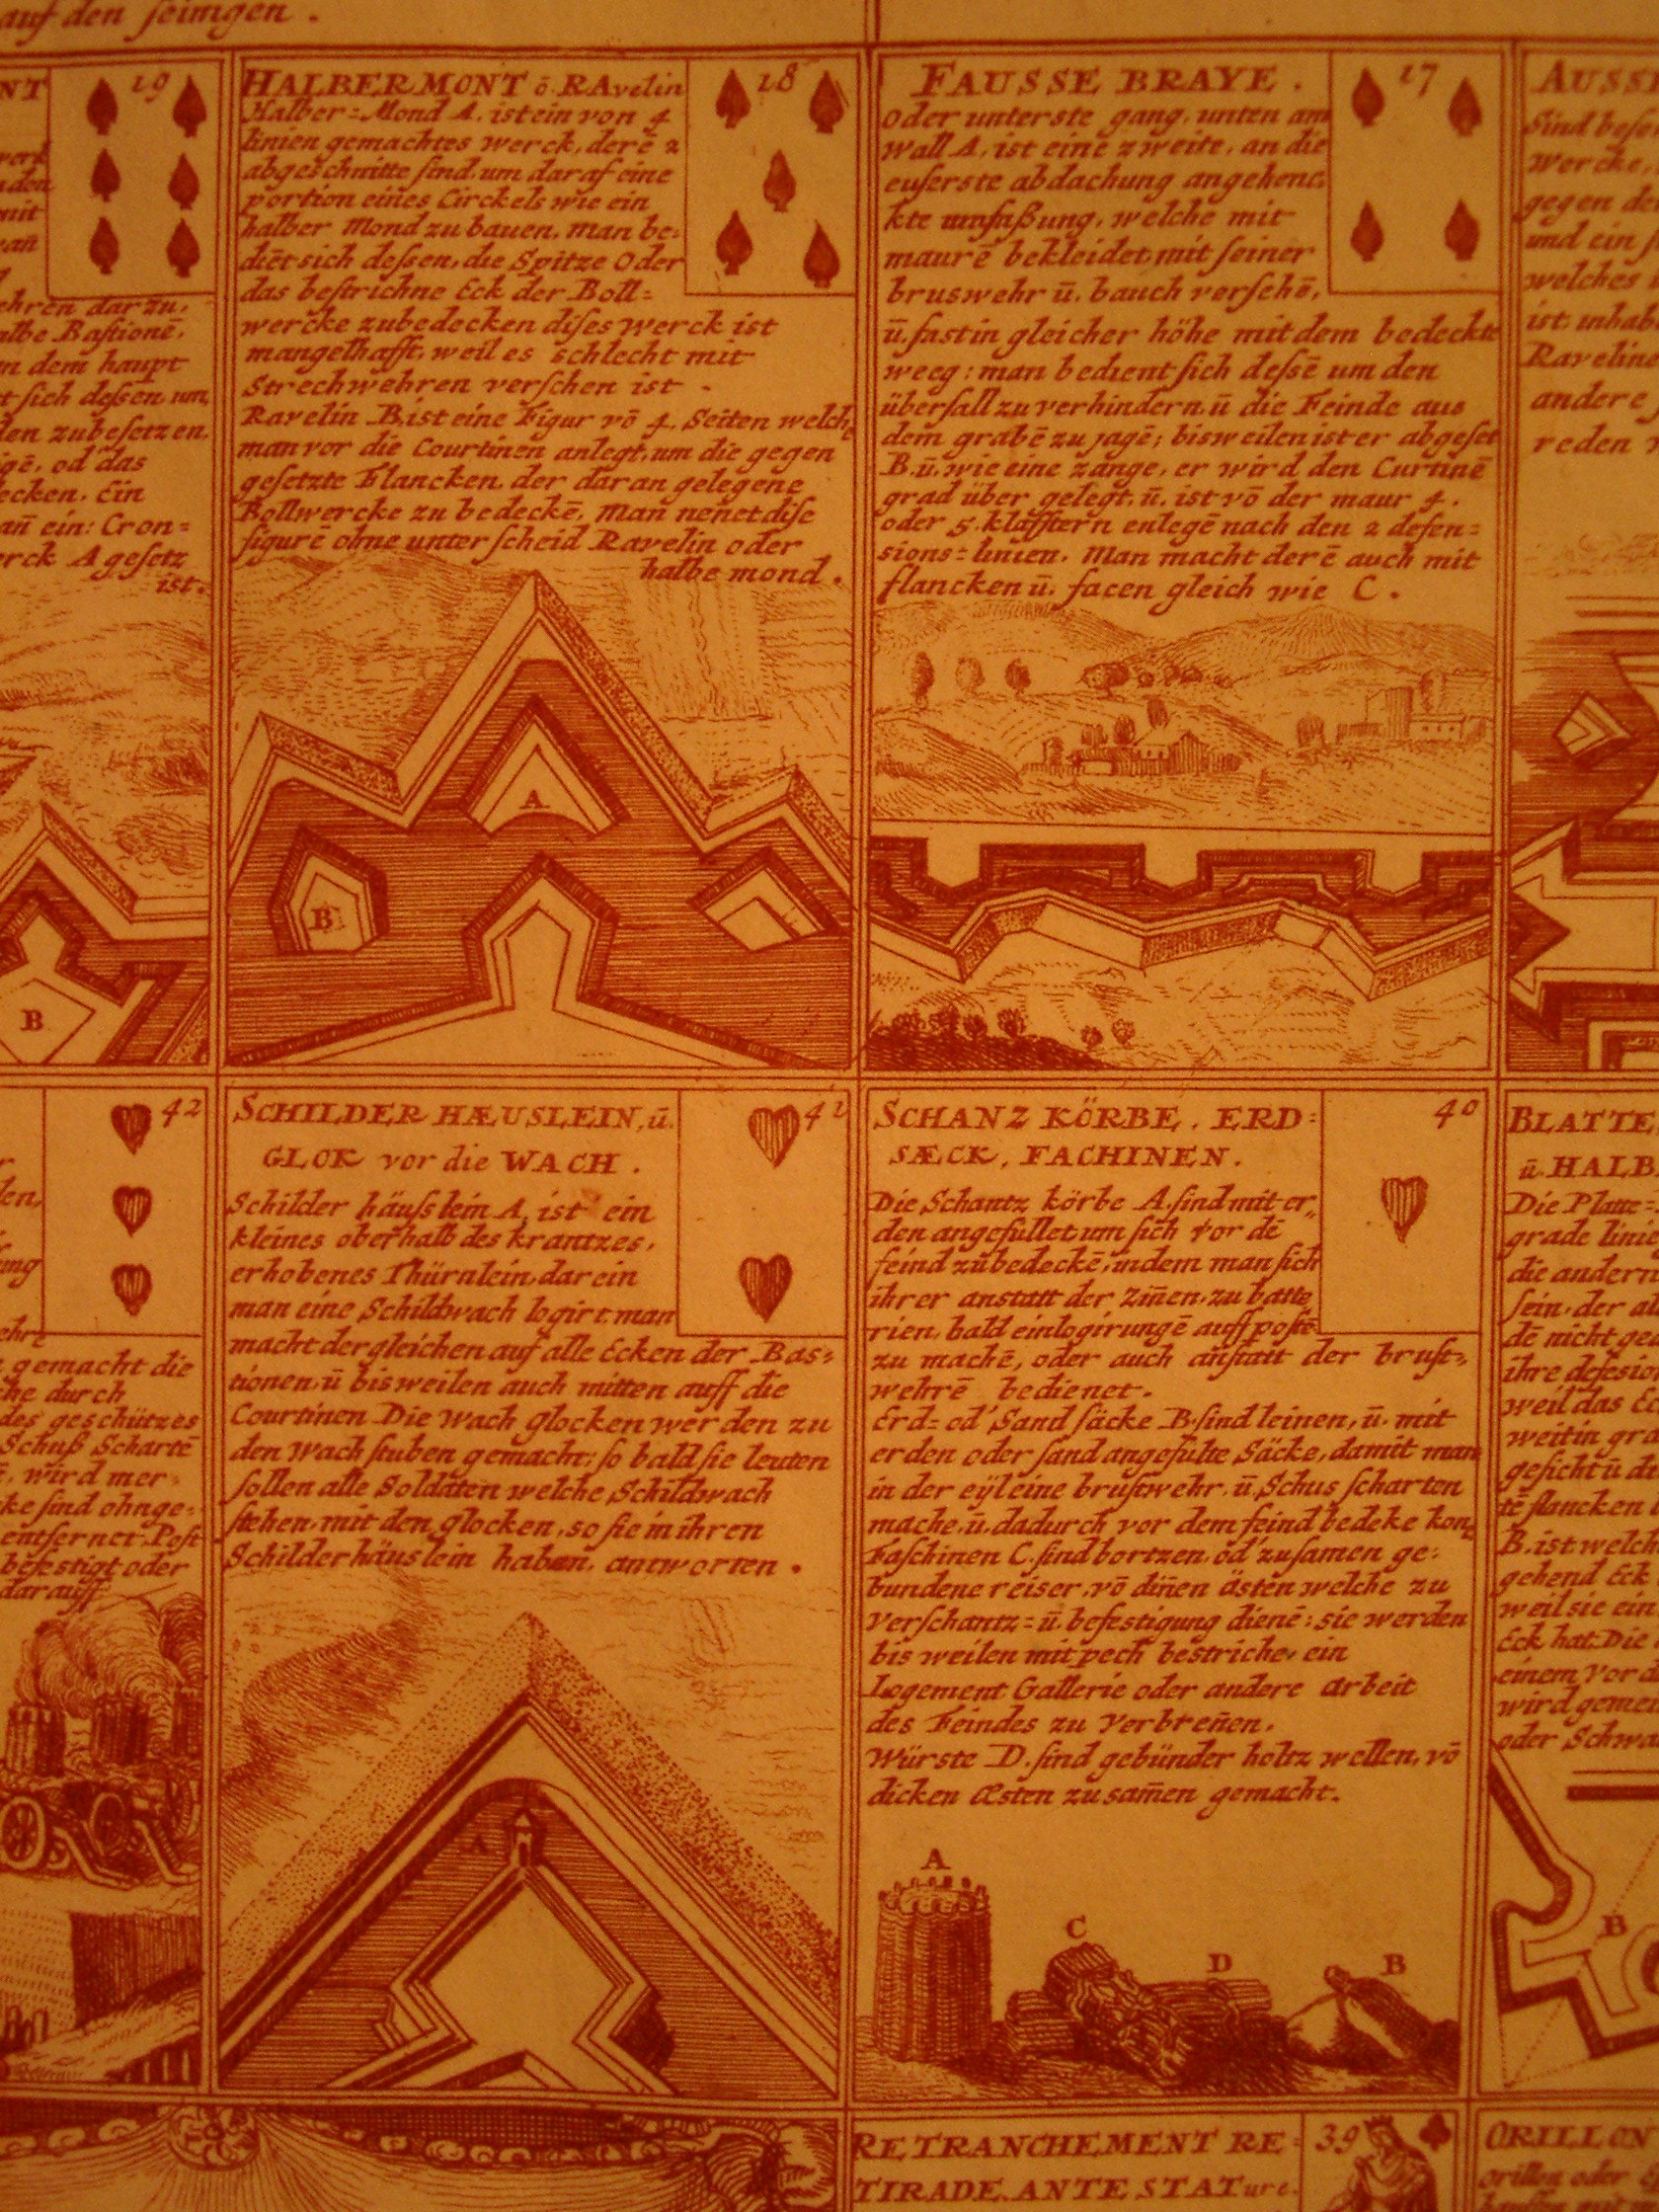 auf den seinigen .
NT
19
werk
den
mit
vañ
ehren dar zu,
albe Bastionē,
n dem haupt
t sich dessen um
den zubesetzen,
igē, od' das
ecken. Ein
añ ein: Cron=
erck A gesetz
ist.
B
HALBER MONT ō RAvelin
18
Halber=Mond A. ist ein von 4
linien gemachtes werck, derē 2
abgeschnitte sind, um daraf eine
portion eines Circkels wie ein
halber Mond zu bauen, man be=
diēt sich dessen, die Spitze oder
das bestrichne Eck der Boll=
wercke zubedecken dises werck ist
mangelhafft, weil es schlecht mit
Strechwehren versehen ist .
Ravelin B. ist eine Figur vō 4. Seiten welche
man vor die Courtinen anlegt, um die gegen
gesetzte Flancken, der daran gelegene
Bollwercke zu bedeckē, Man nēnet dise
figurē ohne unterscheid Ravelin oder
halbe mond .
A
B
FAUSSE BRAYE .
17
oder unterste gang, unten am
Wall A, ist eine zweite, an die
euserste abdachung angehenc,
kte umfaßung, welche mit
maurē bekleidet, mit seiner
bruswehr ū. bauch versehē,
ū. fast in gleicher höhe mit dem bedeckte
weeg: man bedient sich dessē um den
überfall zu verhindern, ū die Feinde aus
dem grabē zu jagē; bisweilen ist er abgeset
B. ū. wie eine zange, er wird den Curtinē
grad über gelegt, ū. ist vō der maur 4.
oder 5. klafftern enlegē nach den 2 defen=
sions=linien. Man macht derē auch mit
flancken ū. facen gleich wie C .
AUSSE
Sind beson
Wercke,
gegen de
und ein
welches
ist, inhab
Raveline
andere
reden
42
den,
ung
ehre
gemacht die
che durch
des geschützes
Schuß Schartē
wird mer=
cke sind ohnge=
entfernet. Post
befestigt oder
darauff
SCHILDER HÆUSLEIN, ū.
41
GLOK vor die WACH .
Schilder häuslein A, ist ein
kleines oberhalb des krantzes,
erhobenes Thürnlein, darein
man eine Schildwach logirt, man
macht dergleichen auf alle Ecken der Bas=
tionen, ū bisweilen auch mitten auff die
Courtinen Die Wach glocken werden zu
den Wach stuben gemacht; so bald sie leuten
sollen alle Soldaten welche Schildwach
stehen, mit den glocken, so sie in ihren
Schilderhäuslein haben, antworten .
A
SCHANZ KÖRBE, ERD=
40
SÆCK, FACHINEN .
Die Schantz körbe A. sind mit er,,
den angefüllet um sich vor dē
feind zubedeckē, indem man sich
ihrer anstatt der Ziñen, zu batte
rien, bald einlogirungē auff postē
zu machē, oder auch anstatt der brust=
wehrē bedienet.
Erd= od' Sand säcke B. sind leinen, ū. mit
erden oder sand angefülte Säcke, damit man
in der eyl eine brustwehr, ū. Schus scharten
mache, ū. dadurch vor dem feind bedeke kon
Faschinen C. sind bortzen, od' zusamen ge=
bundene reiser, vō dinen ästen welche zu
verschantz= ū. befestigung dienē: sie werden
bis weilen mit pech bestriche, ein
Logement Gallerie oder andere arbeit
des Feindes zu verbreñen.
Würste D. sind gebünder holtz wellen, vō
dicken Æsten zusam̄en gemacht.
A
C
D
B
BLATTE
ū. HALB
Die Platte=
grade linie
die andern
sein, der al
dē nicht ged
ihre defesion
weil das Ec
weit in gra
gesicht ū de
tē flancken
B. ist welch
gehend Eck
weil sie ein
Eck hat. Die
einem vord
wird gemei
oder Schwa
B
RETRANCHEMENT RE=
39
TIRADE, ANTE STATure.
ORILLON
orillon oder